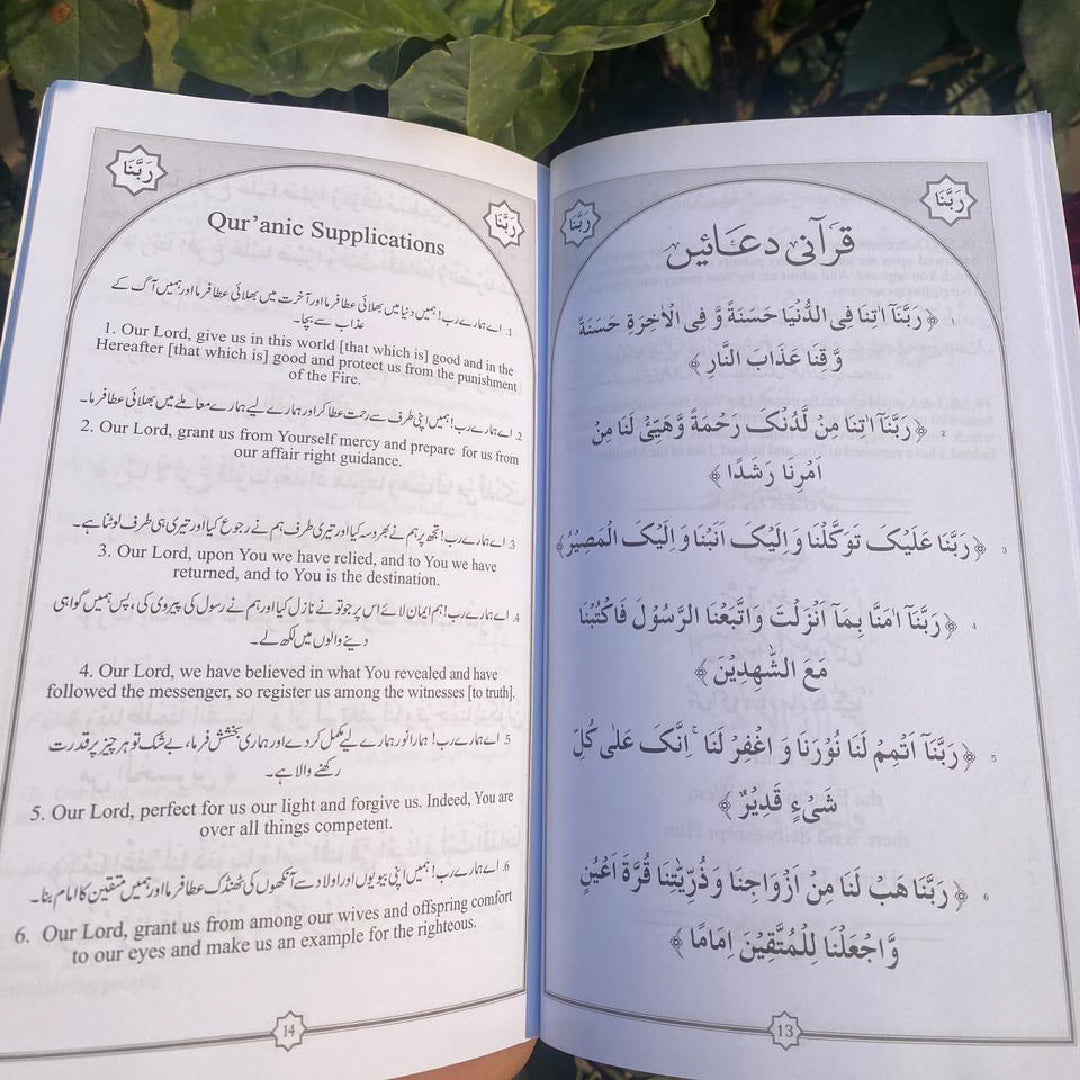 رَبَّنَا
رَبَّنَا
قرآنی دعائیں
۱ ﴿ رَبَّنَآ اٰتِنَا فِی الدُّنْیَا حَسَنَةً وَّ فِی الْاٰخِرَةِ حَسَنَةً
وَّ قِنَا عَذَابَ النَّارِ ﴾
۲ ﴿ رَبَّنَآ اٰتِنَا مِنْ لَّدُنْکَ رَحْمَةً وَّهَیِّئْ لَنَا مِنْ
اَمْرِنَا رَشَدًا ﴾
۳ ﴿ رَبَّنَا عَلَیْکَ تَوَکَّلْنَا وَ اِلَیْکَ اَنَبْنَا وَ اِلَیْکَ الْمَصِیْرُ ﴾
۴ ﴿ رَبَّنَآ اٰمَنَّا بِمَآ اَنْزَلْتَ وَ اتَّبَعْنَا الرَّسُوْلَ فَاکْتُبْنَا
مَعَ الشّٰهِدِیْنَ ﴾
۵ ﴿ رَبَّنَآ اَتْمِمْ لَنَا نُوْرَنَا وَ اغْفِرْ لَنَا ۚ اِنَّکَ عَلٰی کُلِّ
شَیْءٍ قَدِیْرٌ ﴾
۶ ﴿ رَبَّنَا هَبْ لَنَا مِنْ اَزْوَاجِنَا وَ ذُرِّیّٰتِنَا قُرَّةَ اَعْیُنٍ
وَّ اجْعَلْنَا لِلْمُتَّقِیْنَ اِمَامًا ﴾
13
رَبَّنَا
رَبَّنَا
Qur'anic Supplications
1. اے ہمارے رب! ہمیں دنیا میں بھلائی عطا فرما اور آخرت میں بھلائی عطا فرما اور ہمیں آگ کے
عذاب سے بچا۔
1. Our Lord, give us in this world [that which is] good and in the
Hereafter [that which is] good and protect us from the punishment
of the Fire.
2. اے ہمارے رب! ہمیں اپنی طرف سے رحمت عطا کر اور ہمارے لیے ہمارے معاملے میں بھلائی عطا فرما۔
2. Our Lord, grant us from Yourself mercy and prepare for us from
our affair right guidance.
3. اے ہمارے رب! تجھ پر ہم نے بھروسہ کیا اور تیری طرف ہم نے رجوع کیا اور تیری ہی طرف لوٹنا ہے۔
3. Our Lord, upon You we have relied, and to You we have
returned, and to You is the destination.
4. اے ہمارے رب! ہم ایمان لائے اس پر جو تو نے نازل کیا اور ہم نے رسول کی پیروی کی، پس ہمیں گواہی
دینے والوں میں لکھ لے۔
4. Our Lord, we have believed in what You revealed and have
followed the messenger, so register us among the witnesses [to truth].
5. اے ہمارے رب! ہمارا نور ہمارے لیے مکمل کر دے اور ہماری بخشش فرما، بے شک تو ہر چیز پر قدرت
رکھنے والا ہے۔
5. Our Lord, perfect for us our light and forgive us. Indeed, You are
over all things competent.
6. اے ہمارے رب! ہمیں اپنی بیویوں اور اولاد سے آنکھوں کی ٹھنڈک عطا فرما اور ہمیں متقین کا امام بنا۔
6. Our Lord, grant us from among our wives and offspring comfort
to our eyes and make us an example for the righteous.
14